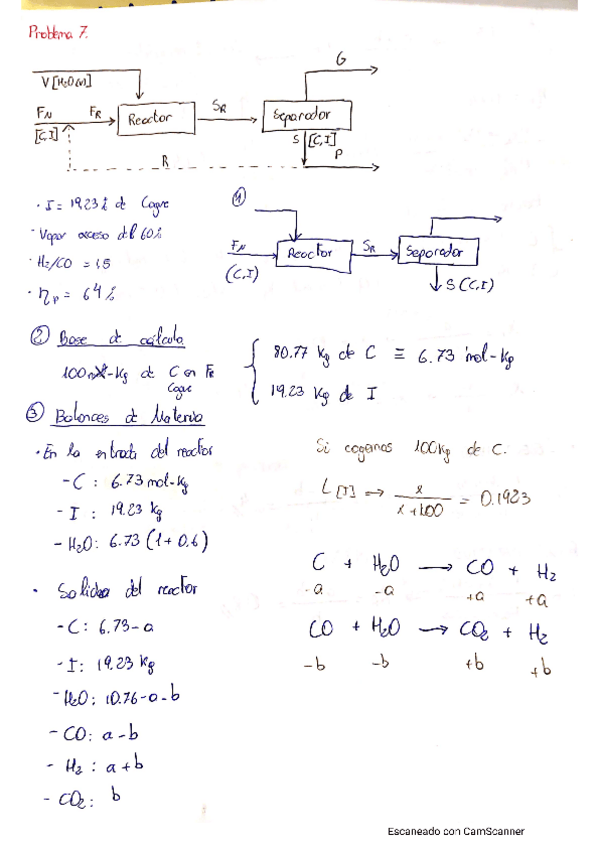 Problema 7.
G
V [H2O(v)]
FN FR Reactor SR Separador
[C,I] S [C,I]
P
R
· I = 19.23% de Coque
· Vapor exceso del 60%
· H2/CO = 1,5
· ηp = 64%
①
FN Reactor SR Separador
(C,I) S (C,I)
② Base de cálculo
100 Kg de C en FR
Coque
80.77 Kg de C ≡ 6.73 mol-Kg
19.23 Kg de I
③ Balances de Materia
· En la entrada del reactor
- C : 6.73 mol-Kg
- I : 19.23 Kg
- H2O: 6.73 (1+0.6)
Si cogemos 100Kg de C.
L [I] → x / x+100 = 0.1923
C + H2O → CO + H2
-a -a +a +a
CO + H2O → CO2 + H2
-b -b +b +b
· Salida del reactor
- C: 6.73-a
- I: 19.23 Kg
- H2O: 10.76-a-b
- CO: a-b
- H2 : a+b
- CO2: b
Escaneado con CamScanner